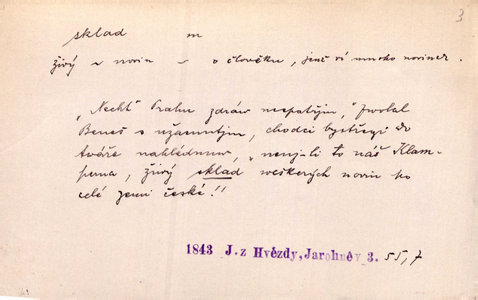 3
sklad m
živý ~ novin – o člověku, jenž ví mnoho novinek.
„Nechť Prahu zdráv nespatřím," zvolal
Beneš s užasnutým, chodci bystřeji do
tváře nahlédnuv, „nenj-li to náš Klam-
perna, živý sklad weškerých novin po
celé zemi české!"
1843 J. z Hvězdy, Jarohněv 3. 55,7